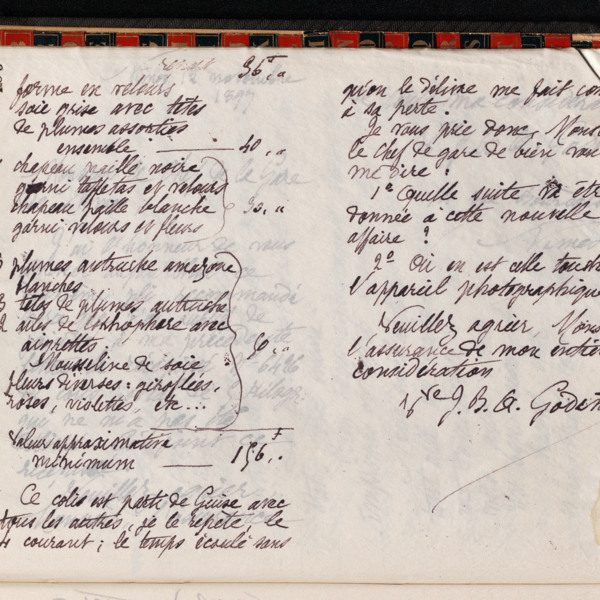 report 36f "
forme en velours
soie grise avec têtes
de plumes assorties
ensemble 40 , "
chapeau paille noire
garni taffetas et velours
chapeau paille blanche 30. "
garni velours et fleurs
plumes autruche amazone
blanches
têtes de plumes autruche
ailes de lophophore avec
aigrettes
Mousseline de soie
fleurs diverses : giroflées,
roses, violettes, etc...
Valeur approximative
minimum 156f..
Ce colis est parti de Guise avec
tous les autres, je le répète, le
4 courant ; le temps écoulé sans
qu'on le délivre me fait
à sa perte.
Je vous prie donc,
le chef de gare de bien
me dire :
1o Quelle suite a été
donnée à cette nouvelle
affaire ?
2o Où en est celle
l'appareil photographique
Veuillez agréer,
l'assurance de mon
considération
Vve J. B. A. Godin